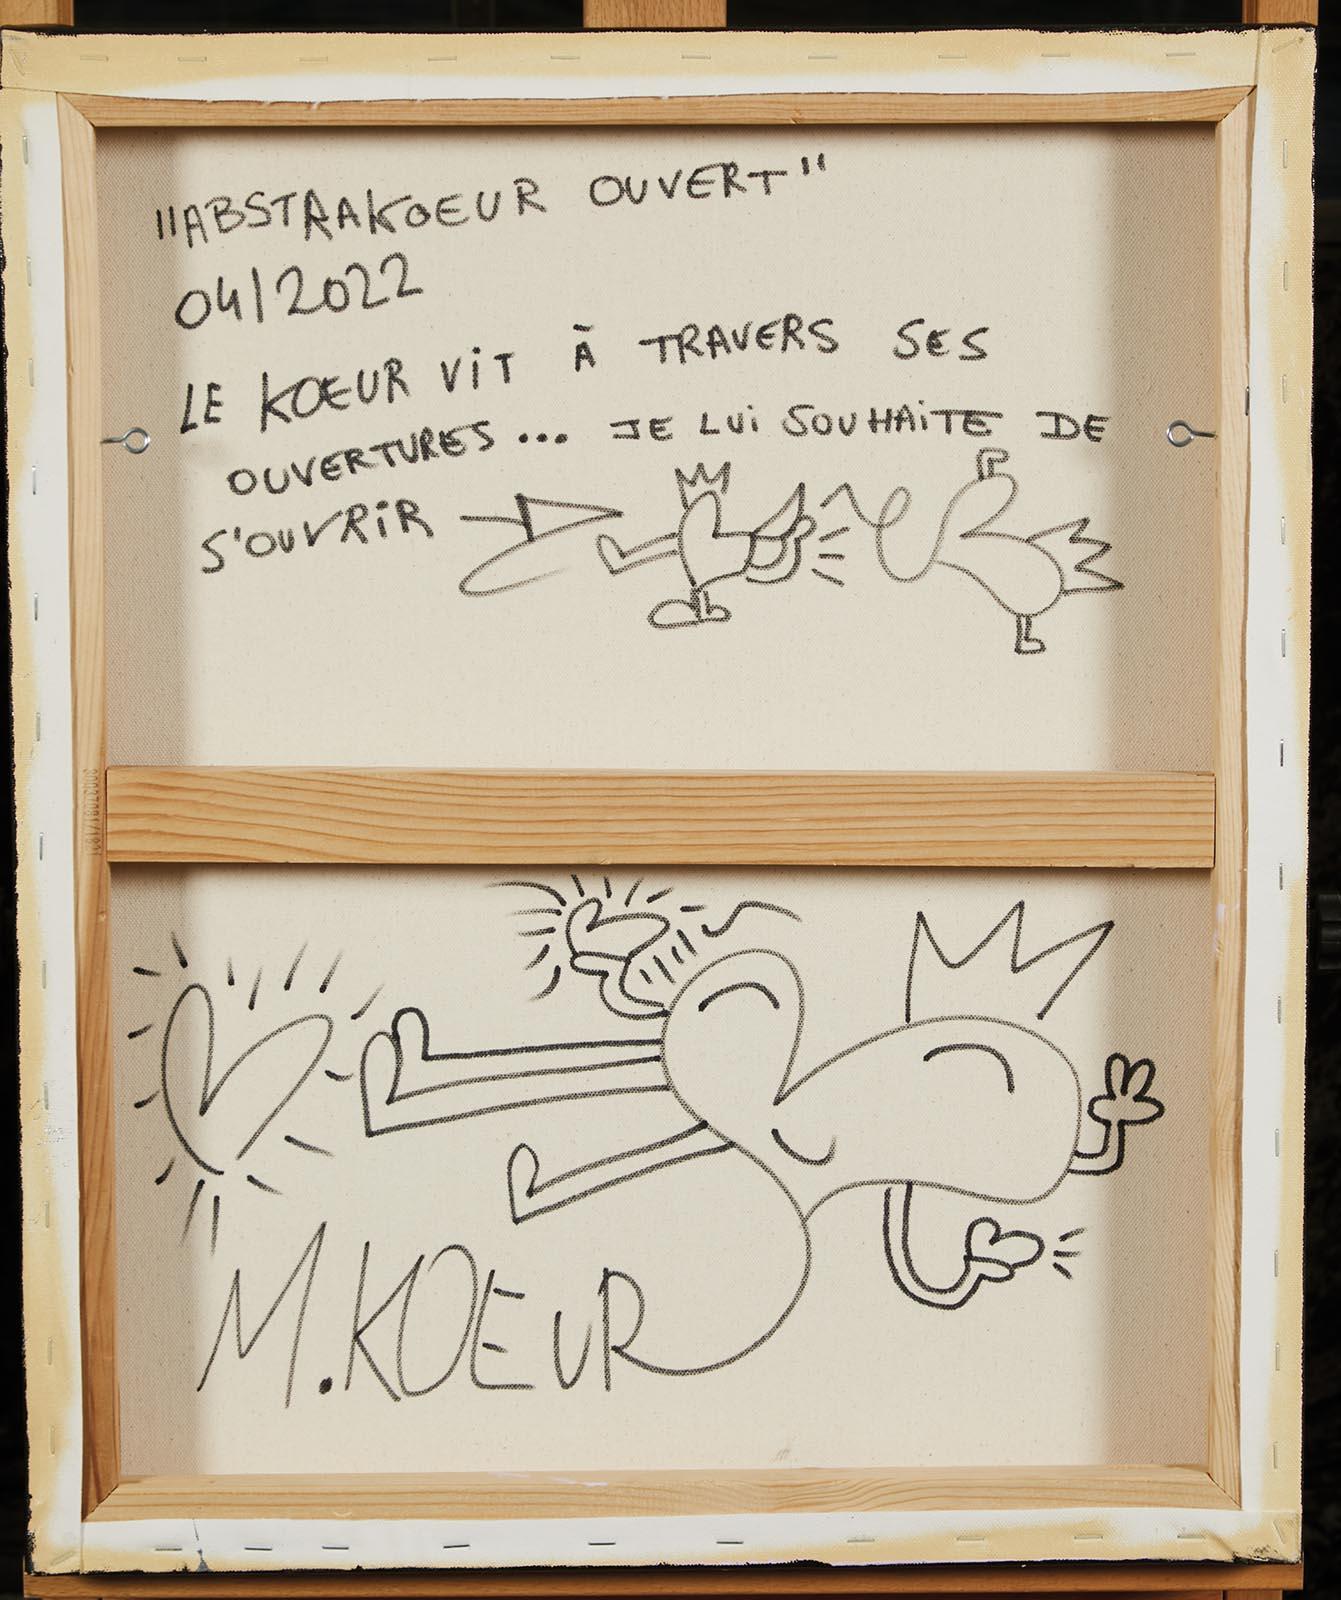 "ABSTRAKOEUR OUVERT"
04/2022
LE KOEUR VIT À TRAVERS SES
OUVERTURES... JE LUI SOUHAITE DE
S'OUVRIR
M.KOEUR